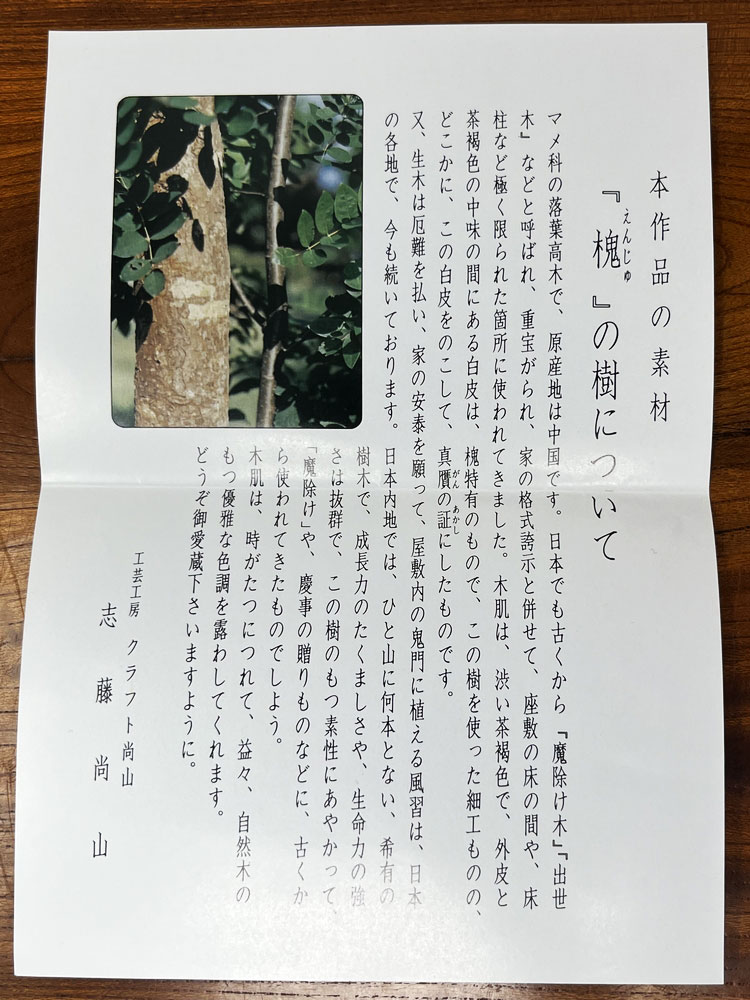 本作品の素材
『槐』の樹について
えんじゅ
マメ科の落葉高木で、原産地は中国です。日本でも古くから『魔除け木』『出世
木』などと呼ばれ、重宝がられ、家の格式誇示と併せて、座敷の床の間や、床
柱など極く限られた箇所に使われてきました。木肌は、渋い茶褐色で、外皮と
茶褐色の中味の間にある白皮は、槐特有のもので、この樹を使った細工ものの、
どこかに、この白皮をのこして、真贋の証にしたものです。
がん あかし
又、生木は厄難を払い、家の安泰を願って、屋敷内の鬼門に植える風習は、日本
の各地で、今も続いております。日本内地では、ひと山に何本とない、希有の
樹木で、成長力のたくましさや、生命力の強
さは抜群で、この樹のもつ素性にあやかって、
「魔除け」や、慶事の贈りものなどに、古くか
ら使われてきたものでしよう。
木肌は、時がたつにつれて、益々、自然木の
もつ優雅な色調を露わしてくれます。
どうぞ御愛蔵下さいますように。
工芸工房 クラフト尚山
志藤尚山